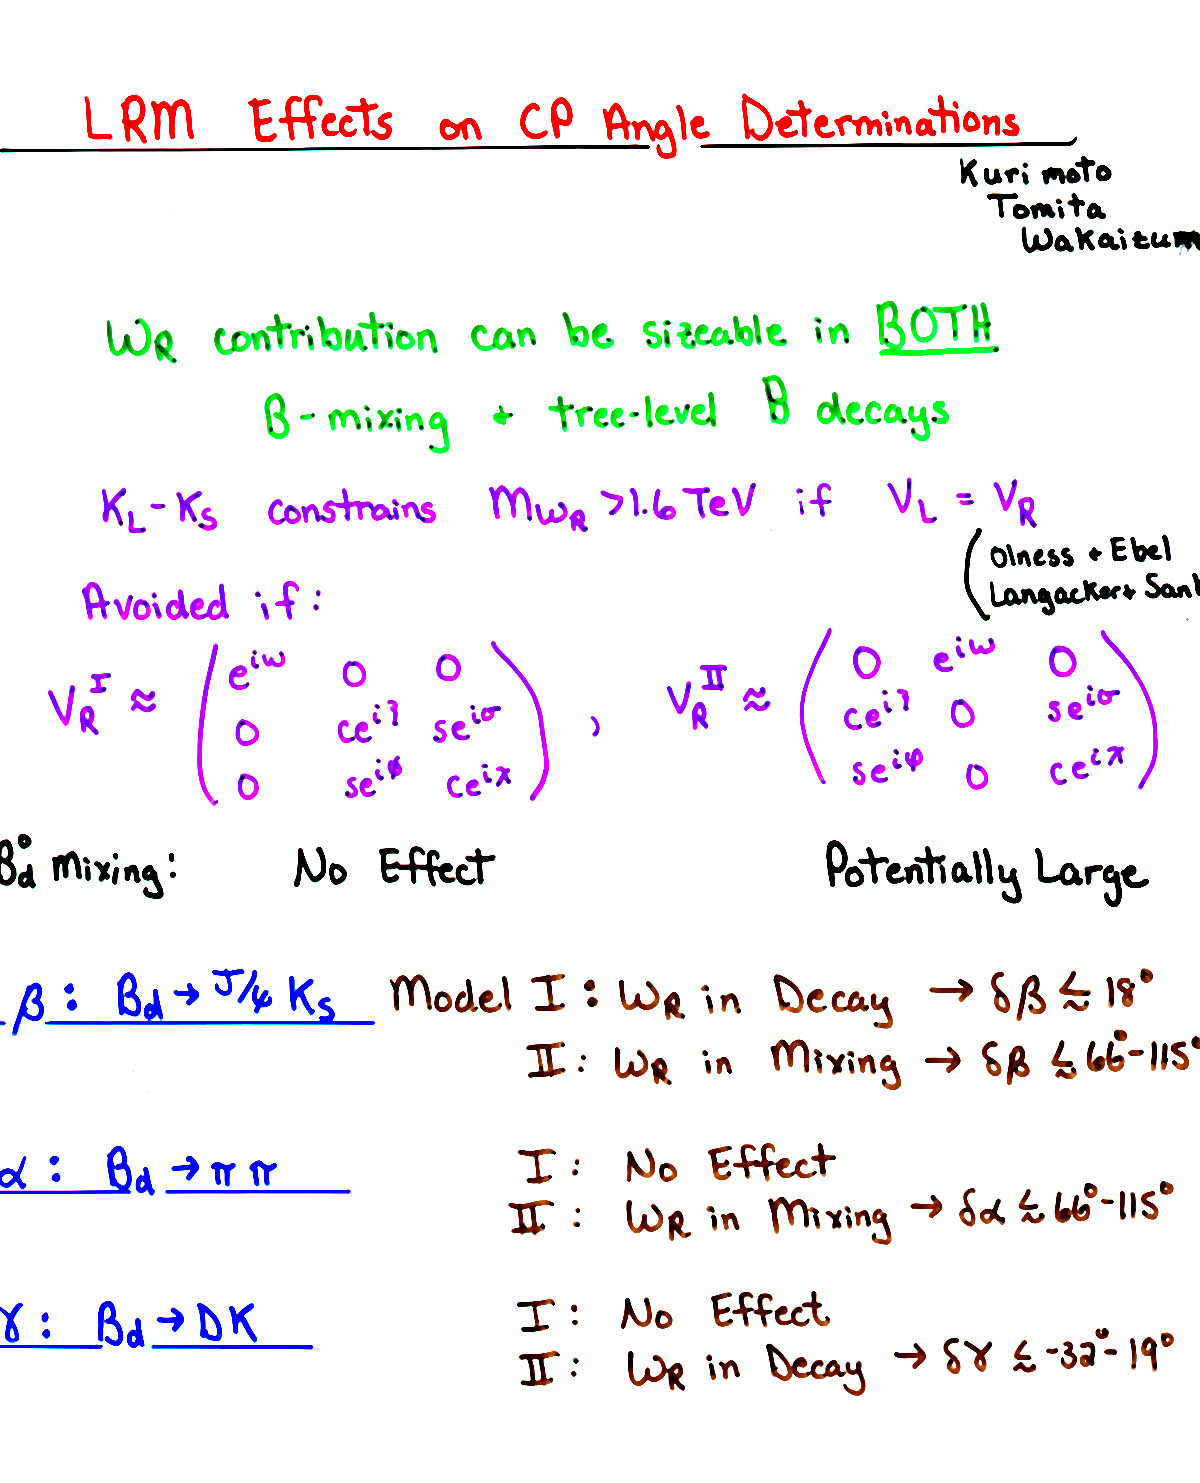 LRM Effects on CP Angle Determinations
Kurimoto
Tomita
Wakaizum
W_R contribution can be sizeable in BOTH
B-mixing + tree-level B decays
K_L-K_S constrains M_{W_R} >1.6 TeV if V_L = V_R
(Olness + Ebel
Langacker + San
Avoided if:
V_R^I ≈ ( e^{iω} 0 0 ; 0 ce^{iξ} se^{iσ} ; 0 se^{iφ} ce^{iχ} ) , V_R^{II} ≈ ( 0 e^{iω} 0 ; ce^{iξ} 0 se^{iσ} ; se^{iφ} 0 ce^{iχ} )
B_d^0 mixing: No Effect Potentially Large
β: B_d → J/ψ K_S Model I: W_R in Decay → δβ ≲ 18°
II: W_R in Mixing → δβ ≲ 66°-115°
α: B_d → π π I: No Effect
II: W_R in Mixing → δα ≲ 66°-115°
γ: B_d → DK I: No Effect
II: W_R in Decay → δγ ≲ -32°-19°